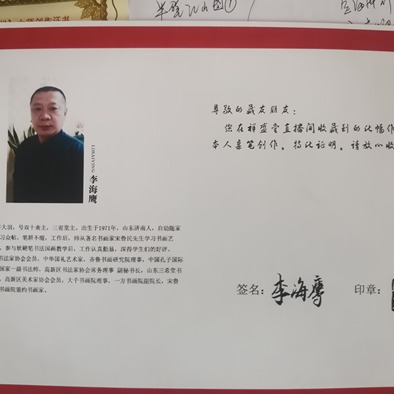 LIHAIYING
李海鹰
字大羽，号双十斋主，三雀堂主，出生于1971年，山东济南人，自幼随家
习众帖，笔耕不辍，工作后，师从著名书画家宋鲁民先生学习书画艺
，参与软硬笔书法国画教学后，工作认真勤恳，深得学生们的好评。
书法家协会会员，中华国礼艺术家，齐鲁书画研究院理事，中国孔子国际
国家一级书法师，高新区书法家协会常务理事 副秘书长，山东三希堂书
，高新区美术家协会会员，大千书画院理事，一方书画院副院长，宋鲁
书画院签约书画家。
尊敬的藏友朋友：
您在祥盛堂直播间收藏到的此幅作
本人亲笔创作。特此证明。请放心收
签名：李海鹰 印章：